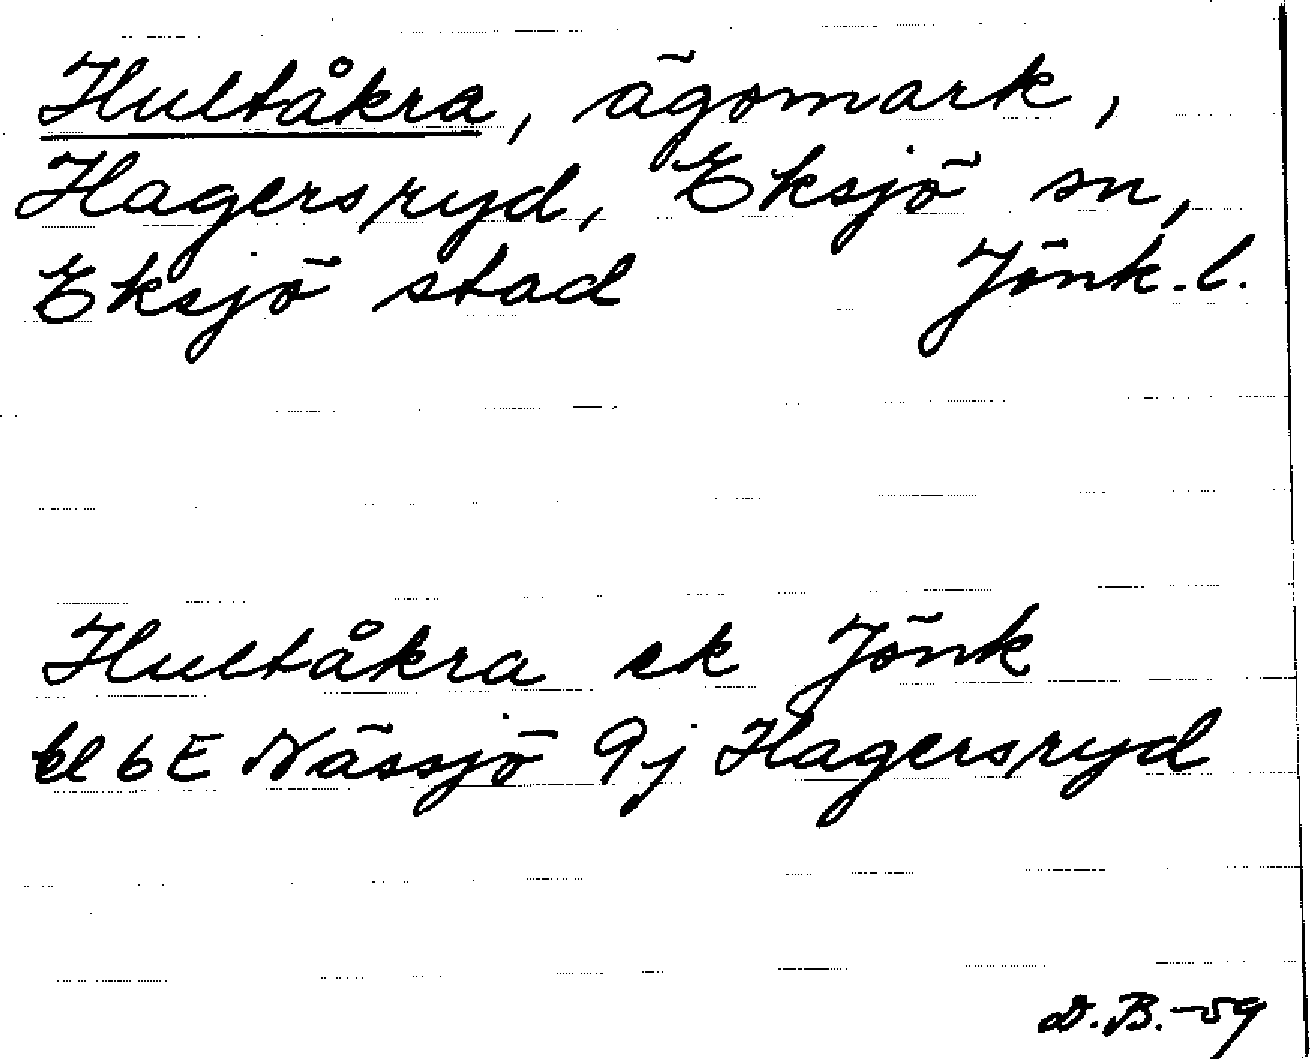 Hultåkra, ägomark,
Hagersryd, Eksjö sn,
Eksjö stad Jönk.l.
Hultåkra ek Jönk
bl 6E Nässjö 9j Hagersryd
D.B.-59